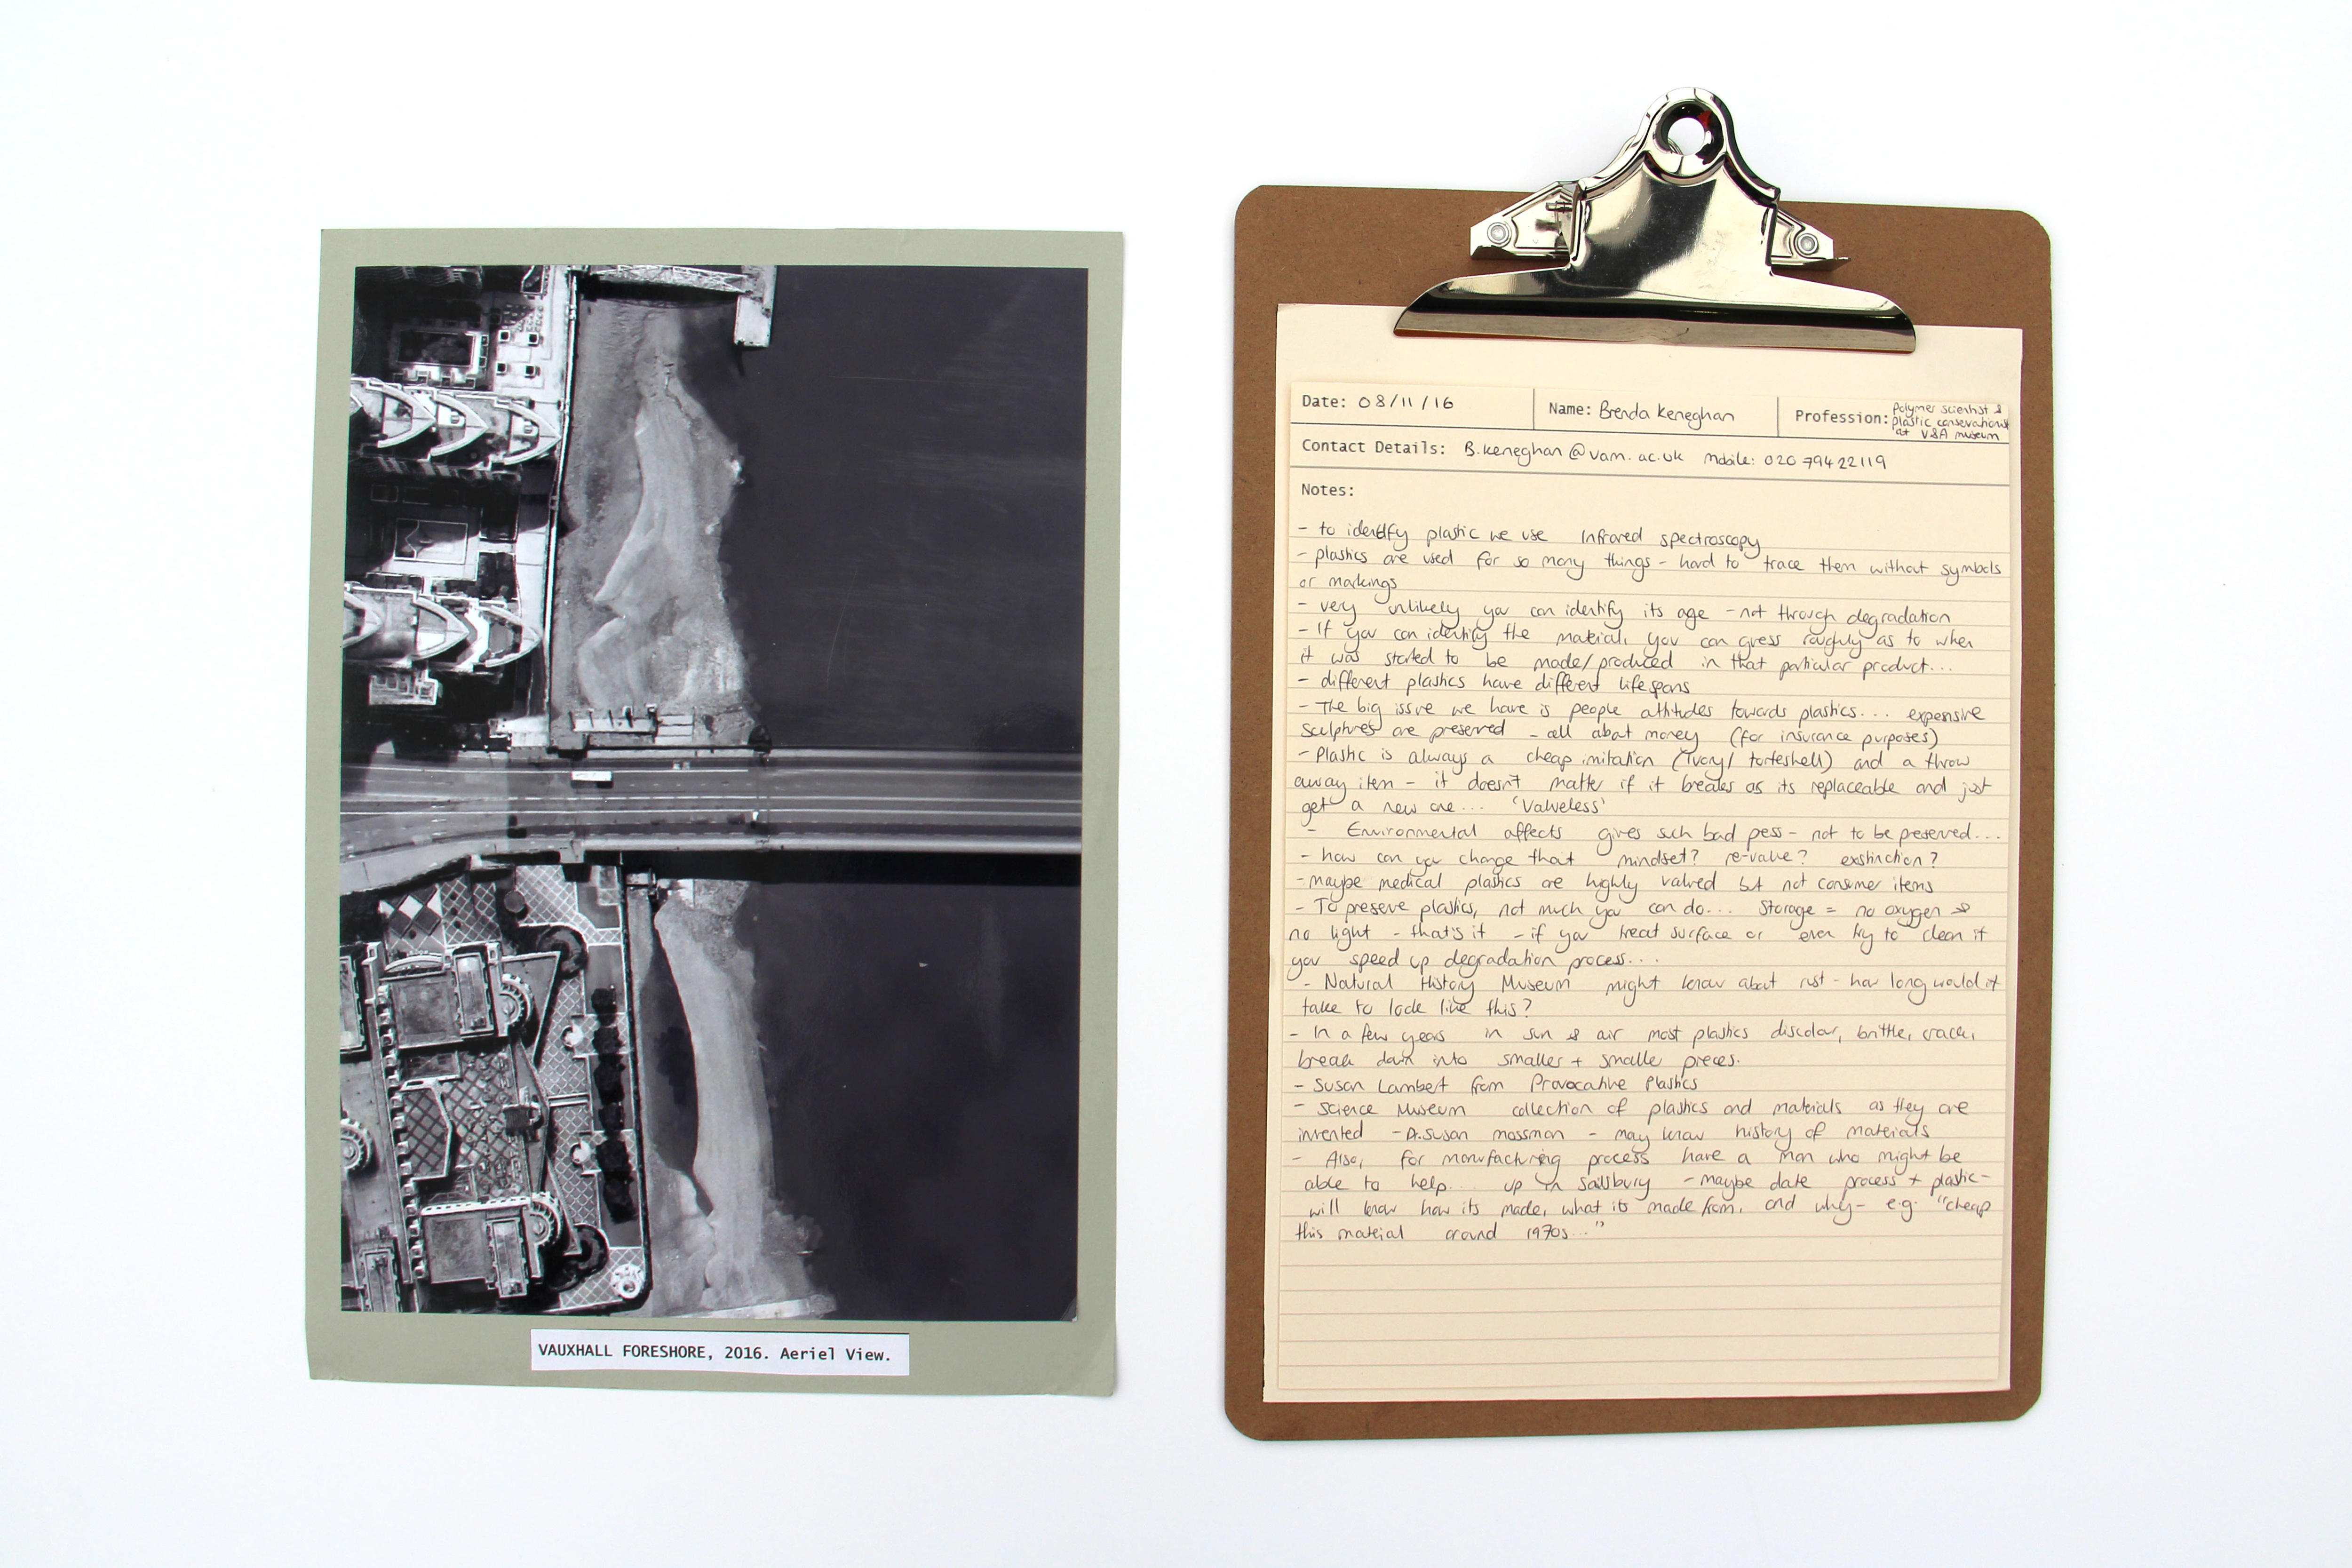 VAUXHALL FORESHORE, 2016. Aeriel View.
Date: 08/11/16
Name: Brenda Keneghan
Profession: polymer scientist &
plastic conservationist
at V&A museum
Contact Details: B.keneghan@vam.ac.uk Mobile: 020 79422119
Notes:
- to identify plastic we use Infrared spectroscopy
- plastics are used for so many things - hard to trace them without symbols
or markings
- very unlikely you can identify its age - not through degradation
- If you can identify the material, you can guess roughly as to when
it was started to be made/produced in that particular product...
- different plastics have different lifespans
- The big issue we have is people attitudes towards plastics... expensive
sculptures are preserved - all about money (for insurance purposes)
- Plastic is always a cheap imitation (Ivory/ torteshell) and a throw
away item - it doesn't matter if it breaks as its replaceable and just
get a new one... 'Valueless'
- Environmental affects gives such bad pess - not to be preserved...
- how can you change that mindset? re-value? exstinction?
- maybe medical plastics are highly valued but not consumer items
- To preserve plastics, not much you can do... Storage = no oxygen &
no light - that's it - if you treat surface or even try to clean it
you speed up degradation process...
- Natural History Museum might know about rust - how long would it
take to look like this?
- In a few years in sun & air most plastics discolour, brittle, crack,
break down into smaller + smaller pieces.
- Susan Lambert from Provocative Plastics
- Science Museum collection of plastics and materials as they are
invented - D.Susan mossman - may know history of materials
- Also, for manufacturing process have a man who might be
able to help... up in Sailsbury - maybe date process + plastic -
will know how its made, what its made from, and why - e.g. "cheap
this material around 1970s..."